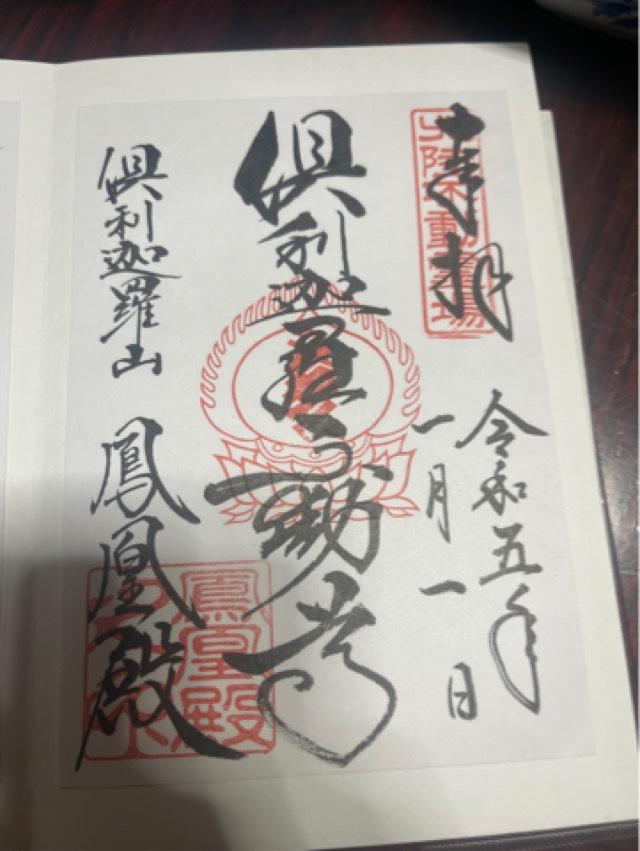 奉拝
北陸不動霊場
令和五年
一月一日
倶利迦羅不動尊
倶利迦羅山 鳳凰殿
鳳凰殿